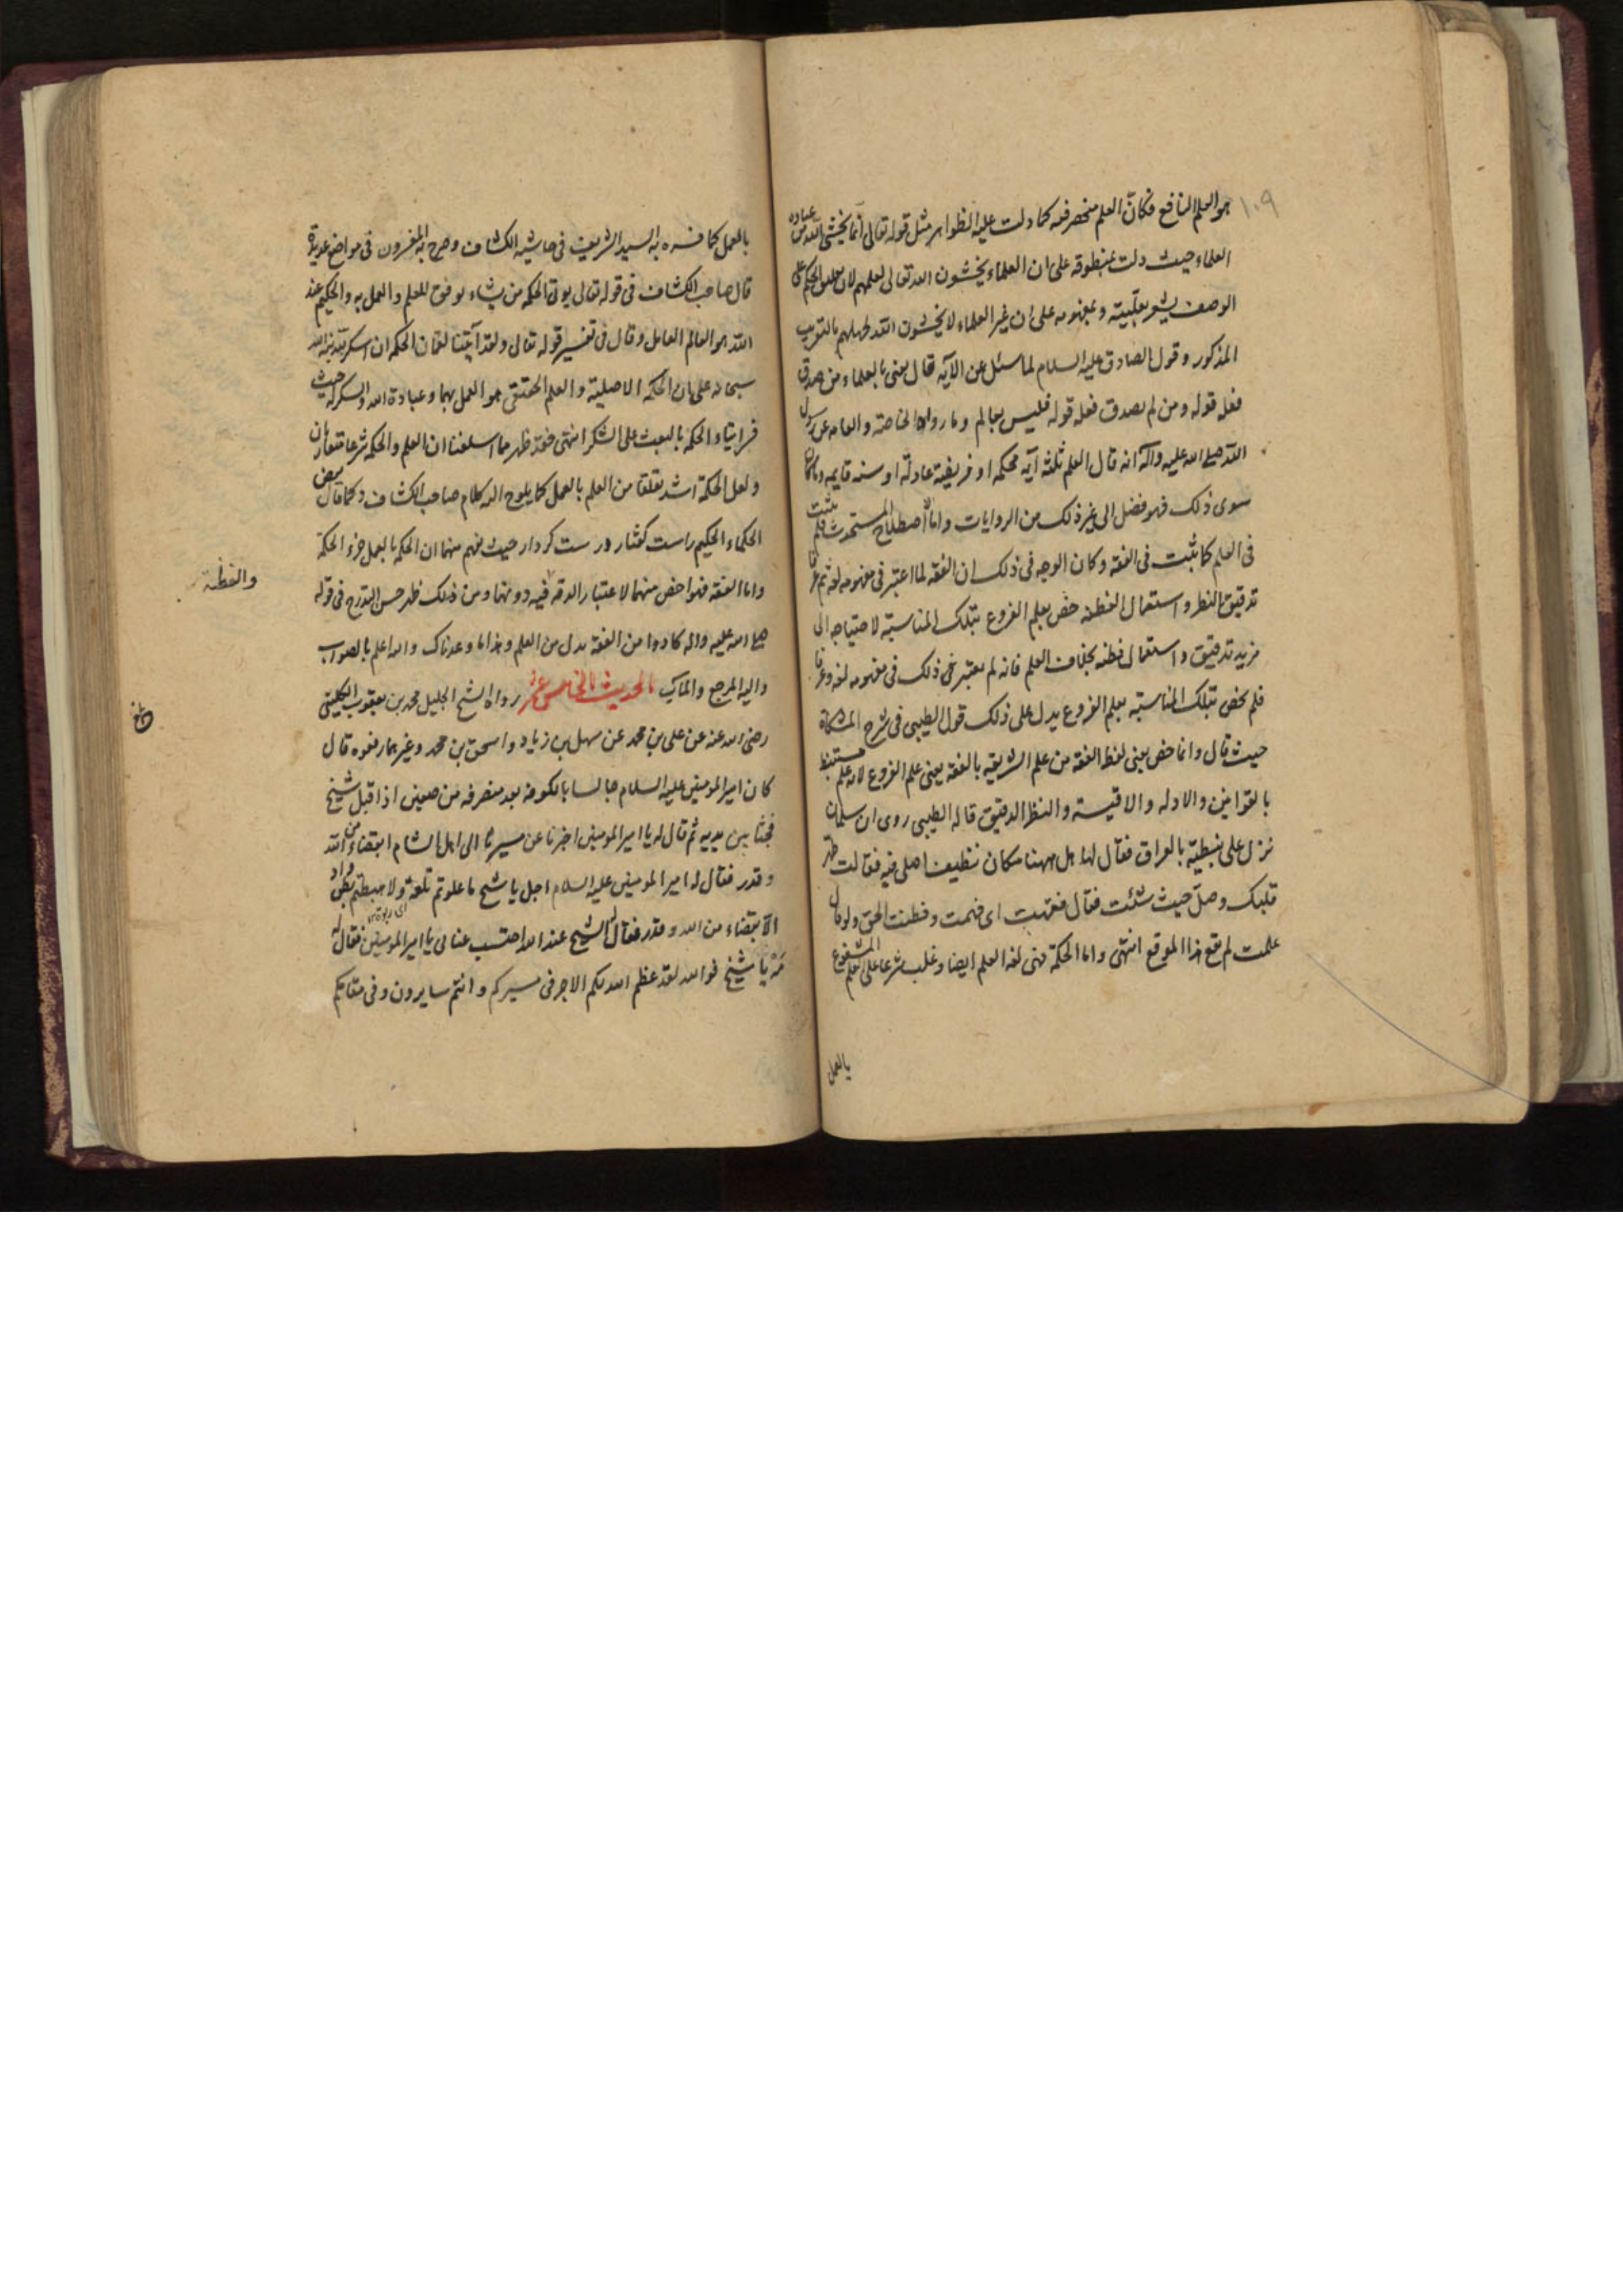 ١٠٩
هو العلم النافع فكانّ العلم منحصر فيه كما دلت عليه الظواهر مثل قوله تعالى انما يخشى الله من عباده
العلماء حيث دلت بمنطوقه على ان العلماء يخشون الله تعالى لعلمهم لان تعلق الحكم على
الوصف يشعر بعلّيته و بمفهومه على ان غير العلماء لا يخشون الله لجهلهم بالتقريب
المذكور و قول الصادق عليه السلام لما سئل عن الآيه قال يعنى بالعلماء من صدق
فعله قوله و من لم يصدق فعله قوله فليس بعالم و ما رواه الخاصة و العامه عن رسول
الله صلى الله عليه وآله انه قال العلم ثلثه آيه محكمه او فريضة عادلة او سنه قايمه و ما كان
سوى ذلك فهو فضل الى غير ذلك من الروايات و اما الاصطلاح المستحدث فلم يثبت
فى العلم كما ثبت فى الفقه و كان الوجه فى ذلك ان الفقه لما اعتبر فى مفهومه لغه ثم عرفا
تدقيق النظر و استعمال الفطنه خصّ بعلم الفروع بتلك المناسبة لاحتياجه الى
مزيد تدقيق و استعمال فطنه بخلاف العلم فانه لم يعتبر فى ذلك فى مفهومه لغه و عرفا
فلم يخص بتلك المناسبة بعلم الفروع يدل على ذلك قول الطيبى فى شرح المشكاة
حيث قال و انما خص يعنى لفظ الفقه من علم الشريعه بالفقه يعنى علم الفروع لانه علم مستنبط
بالقوانين و الادله و الاقيسة و النظر الدقيق قاله الطيبى روى ان سلمان
نزل على نبطيّة بالعراق فقال لها هل ههنا مكان نظيف اصلى فيه فقالت طهّر
قلبك و صلّ حيث شئت فقال فقهت اى فهمت و فطنت الحق و لو قال
علمت لم يقع هذا الموقع انتهى و اما الحكمة فهى لغة العلم ايضا و غلب شرعا على العلم المشفوع
بالعمل
بالعمل كما فسره به السيد الشريف فى حاشية الكشاف و صرح به المفسرون فى مواضع عديدة
قال صاحب الكشاف فى قوله تعالى يوتى الحكمه من يشاء يوفق للعلم و العمل به و الحكيم عند
الله هو العالم العامل و قال فى تفسير قوله تعالى و لقد آتينا لقمان الحكمه ان اشكر لله نبّه الله
سبحانه على ان الحكمه الاصلية و العلم الحقيقى هو العمل بهما و عبادة الله و الشكر له حيث
فسر ايتاء الحكمه بالبعث على الشكر انتهى فقد ظهر مما اسلفنا ان العلم و الحكمه شرعا متقاربان
و لعل الحكمة اشد تعلقا من العلم بالعمل كما يلوح اليه كلام صاحب الكشاف و كما قال بعض
الحكماء الحكيم راست گفتار درست كردار حيث يفهم منهما ان الحكمه بالعمل جزء الحكمة
و اما الفقه فهو اخص منهما لاعتبار الدقه فيه دونهما و من ذلك ظهر حسن التدرج فى قوله
والفطنة
صلى الله عليه واله كادوا من الفقه بدل من العلم و هذا ما وعدناك و الله اعلم بالصواب
و اليه المرجع و المآب الحديث الخامس عشر رواه الشيخ الجليل محمد بن يعقوب الكلينى
رضى الله عنه عن على بن محمد عن سهل بن زياد و اسحق بن محمد و غيرهما رفعوه قال
كان امير المومنين عليه السلام جالسا بالكوفه بعد منصرفه من صفين اذ اقبل شيخ
فجثا بين يديه ثم قال له يا امير المومنين اخبرنا عن مسيرنا الى اهل الشام ابقضاء من الله
و قدر فقال له امير المومنين عليه السلام اجل يا شيخ ما علوتم تلعة و لا هبطتم بطن واد
الا بقضاء من الله و قدر فقال له الشيخ عند الله احتسب عنائى يا امير المومنين فقال له
مَهْ يا شيخ فوالله لقد عظم الله لكم الاجر فى مسيركم و انتم سايرون و فى مقامكم